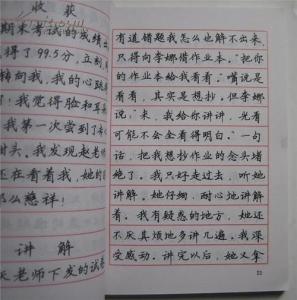 收 获
期末考试的成绩出
得了99.5分，立刻，
转向我，我的心跳
！我觉得脸和耳
我第一次尝到了
甜头。我发现赵老师
还在看着我，她的
那么慈祥！
讲 解
天老师下发的试卷
有道错题我怎么也解不出来，
只得向李娜借作业本。“把你
的作业本给我看看。”嘴说是
看看，其实是想抄。但李娜
说：“来，我给你讲讲，光看
可能不会全看得明白。”一句
话，把我想抄作业的念头堵
绝了。我只好走过去，听她
讲解。她仔细、耐心地讲解
着。我有疑惑的地方，她还
不厌其烦地多讲几遍。我深
受感动。讲完以后，她又拿
53